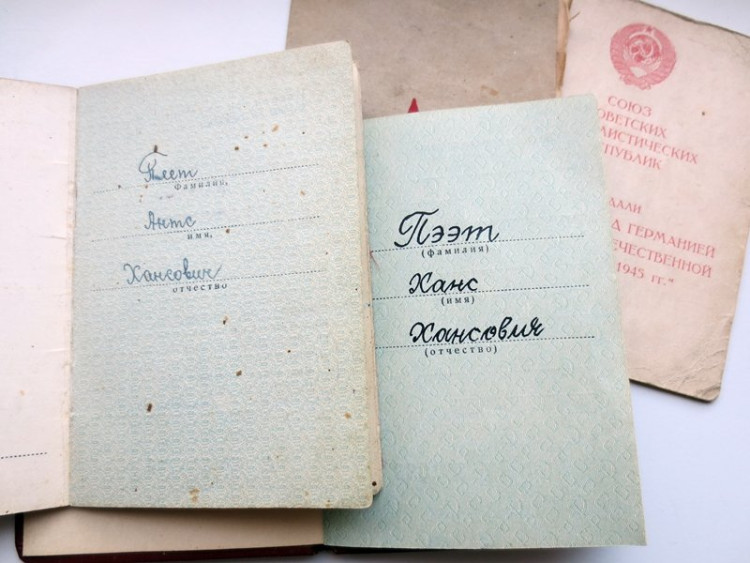 Плеет
фамилия,
Антс
имя,
Хансович
отчество
Пээт
(фамилия)
Ханс
(имя)
Хансович
(отчество)
СОЮЗ
ОВЕТСКИХ
ЛИСТИЧЕСКИХ
СПУБЛИК
ДАЛИ
Д ГЕРМАНИЕЙ
ЕЧЕСТВЕННОЙ
1945 гг."